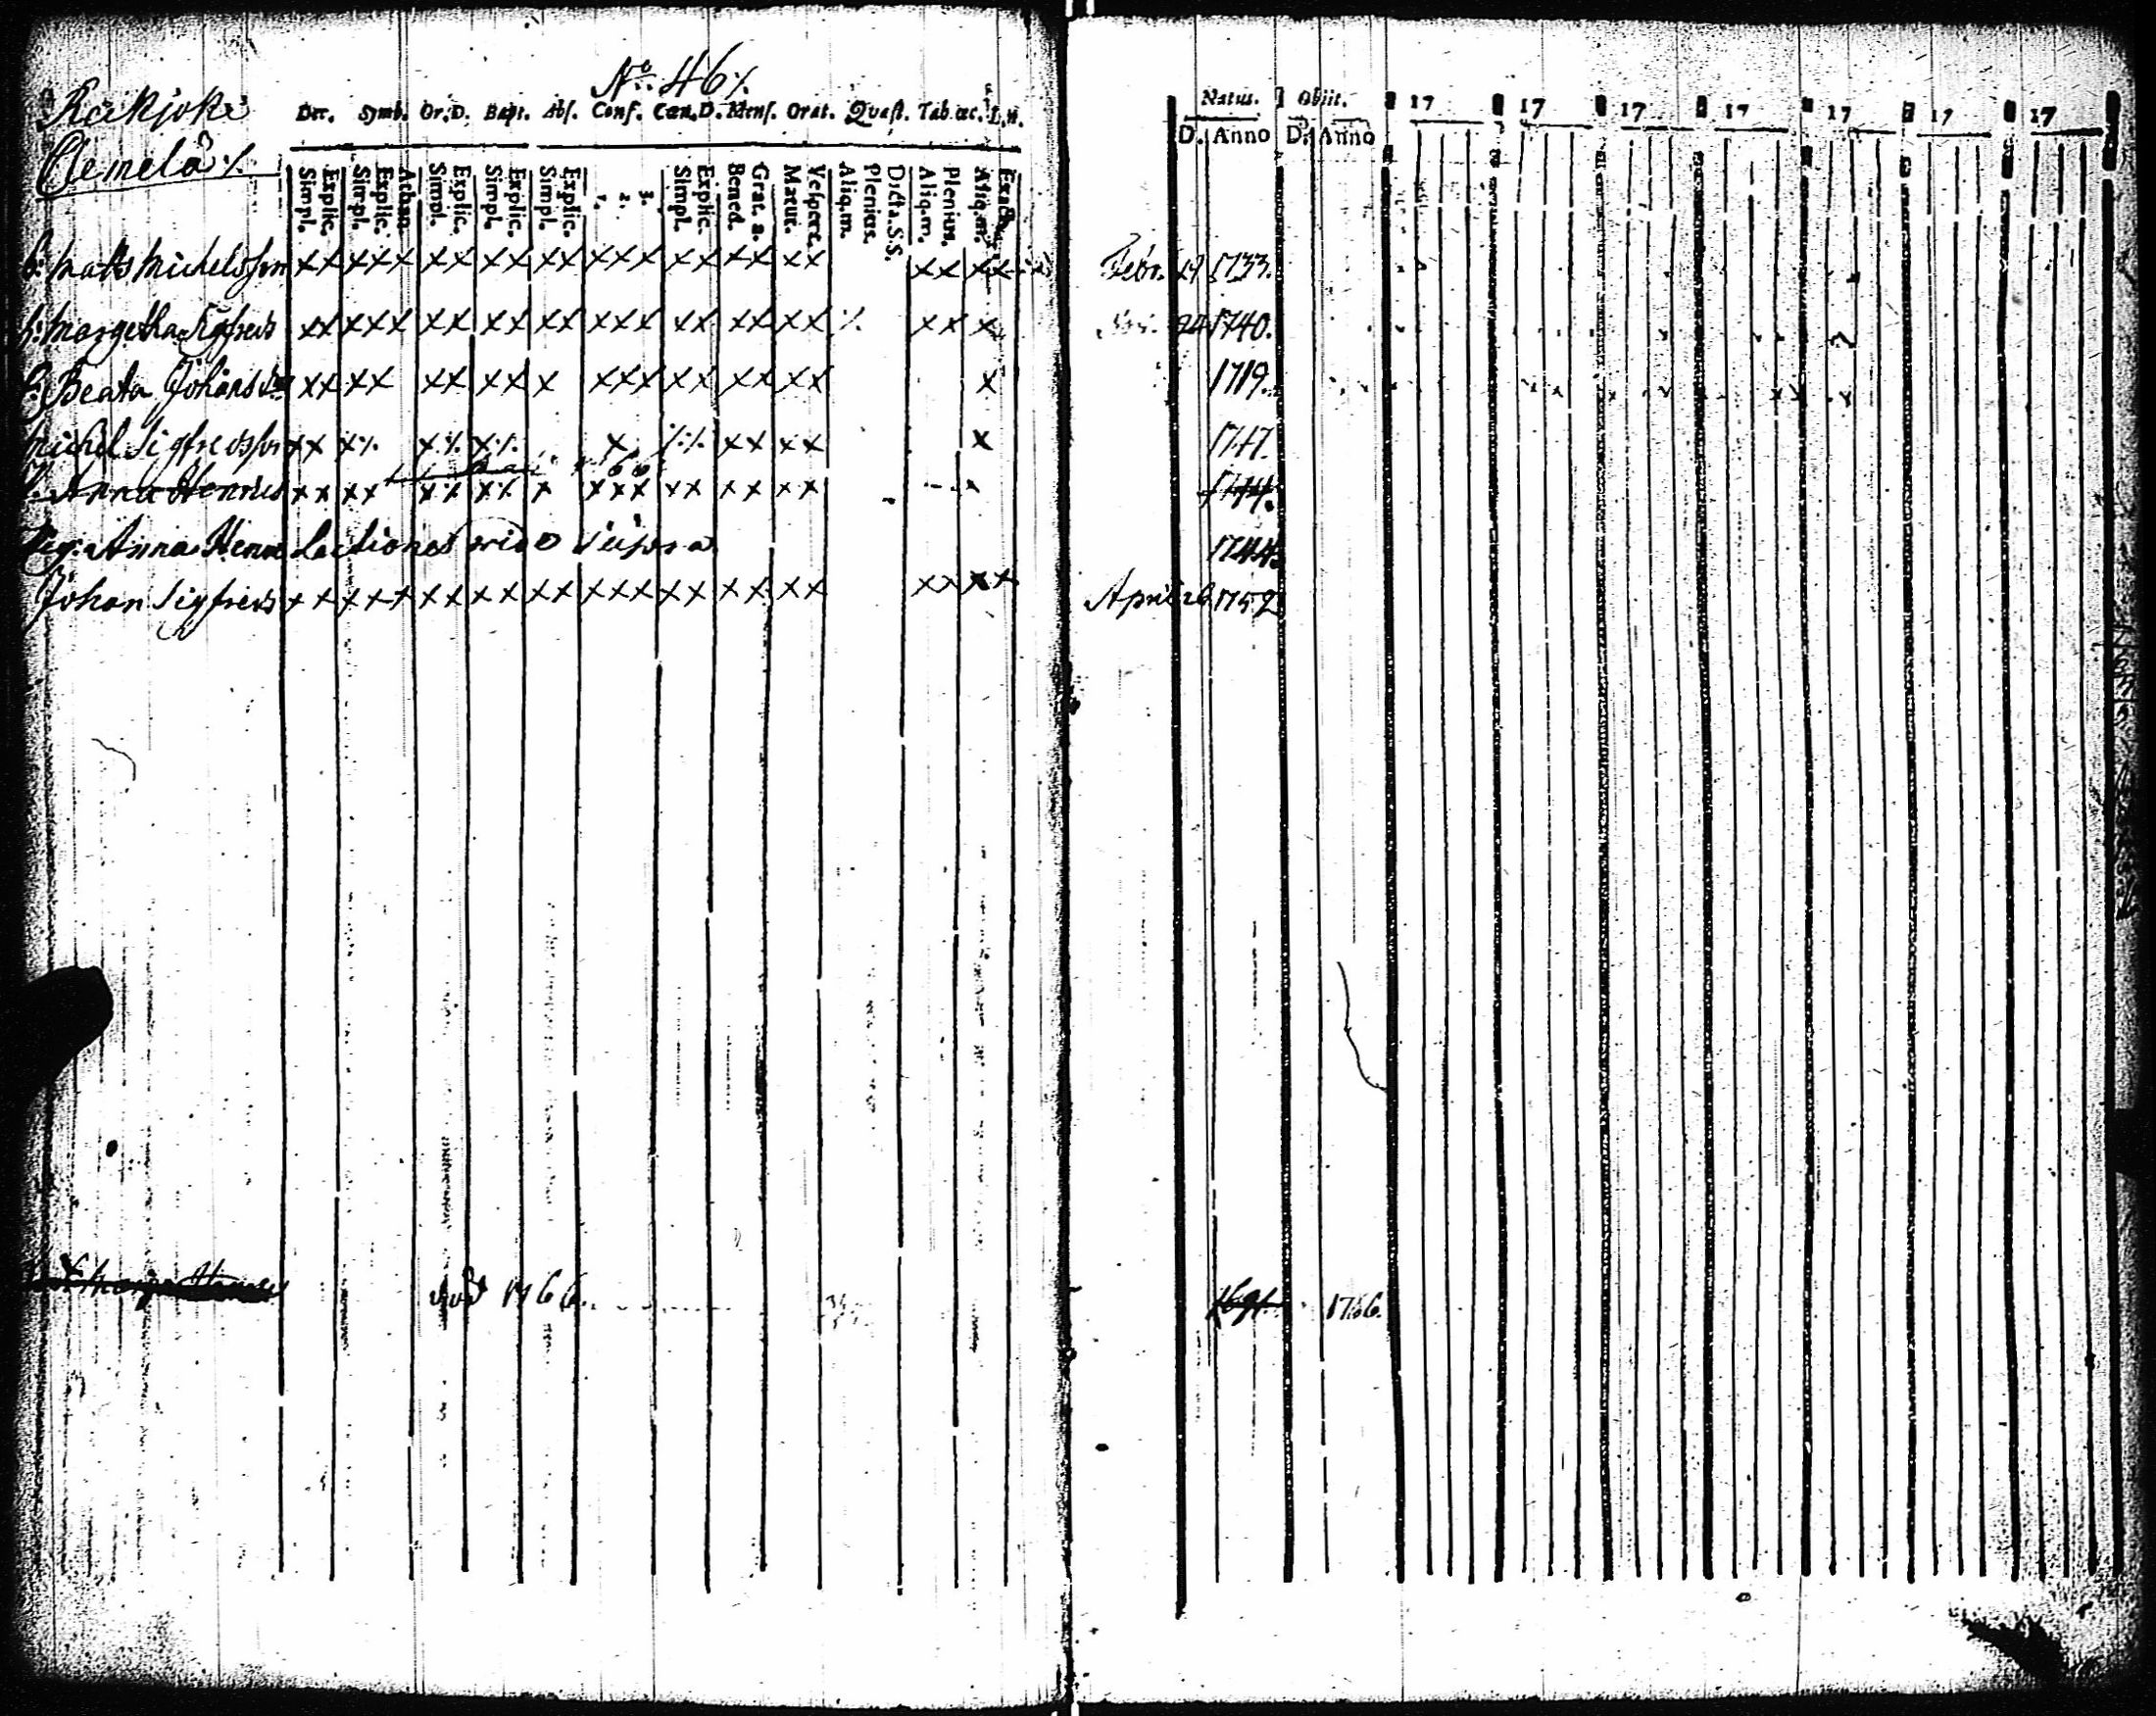 No. 46 ⁒
Räckjoki
Clemelä ⁒
Dec. Symb. Or. D. Bapt. Abs. Conf. Cœn. D. Mens. Orat. Quæst. Tab. œc. L. n.
Simpl. Explic. Simpl. Explic. Athan. Simpl. Explic. Simpl. Explic. Simpl. Explic. 1. 2. 3. Simpl. Explic. Bened. Grat. a. Matut. Vespert. Aliq.m. Plenius. Dicta. S.S. Aliq.m. Plenius. Aliq.m. Exactè
Natus. Obiit. 17 17 17 17 17 17 17
D. Anno D. Anno
b: Matts Michelsson xx xxx xx xx xx xxx xx xx xx xx xx Febr. 19 1733.
h: Margetha Sigfreds xx xxx xx xx xx xxx xx xx xx ⁒ xx x 24 1740.
Beata Johansd xx xx xx xx x xxx xx xx xx x 1719.
Michel Sigfredsson xx x⁒ x⁒ x⁒ x xx xx x 1747.
Anna Henrics xx xx xx xx x xxx xx xx xx x 1744.
Anna Henr Lectiones 1744
Johan Sigfreds xx xxx xx xx xx xxx xx xx xx xx xx April 26 1752
död 1766. 1691. 1766.